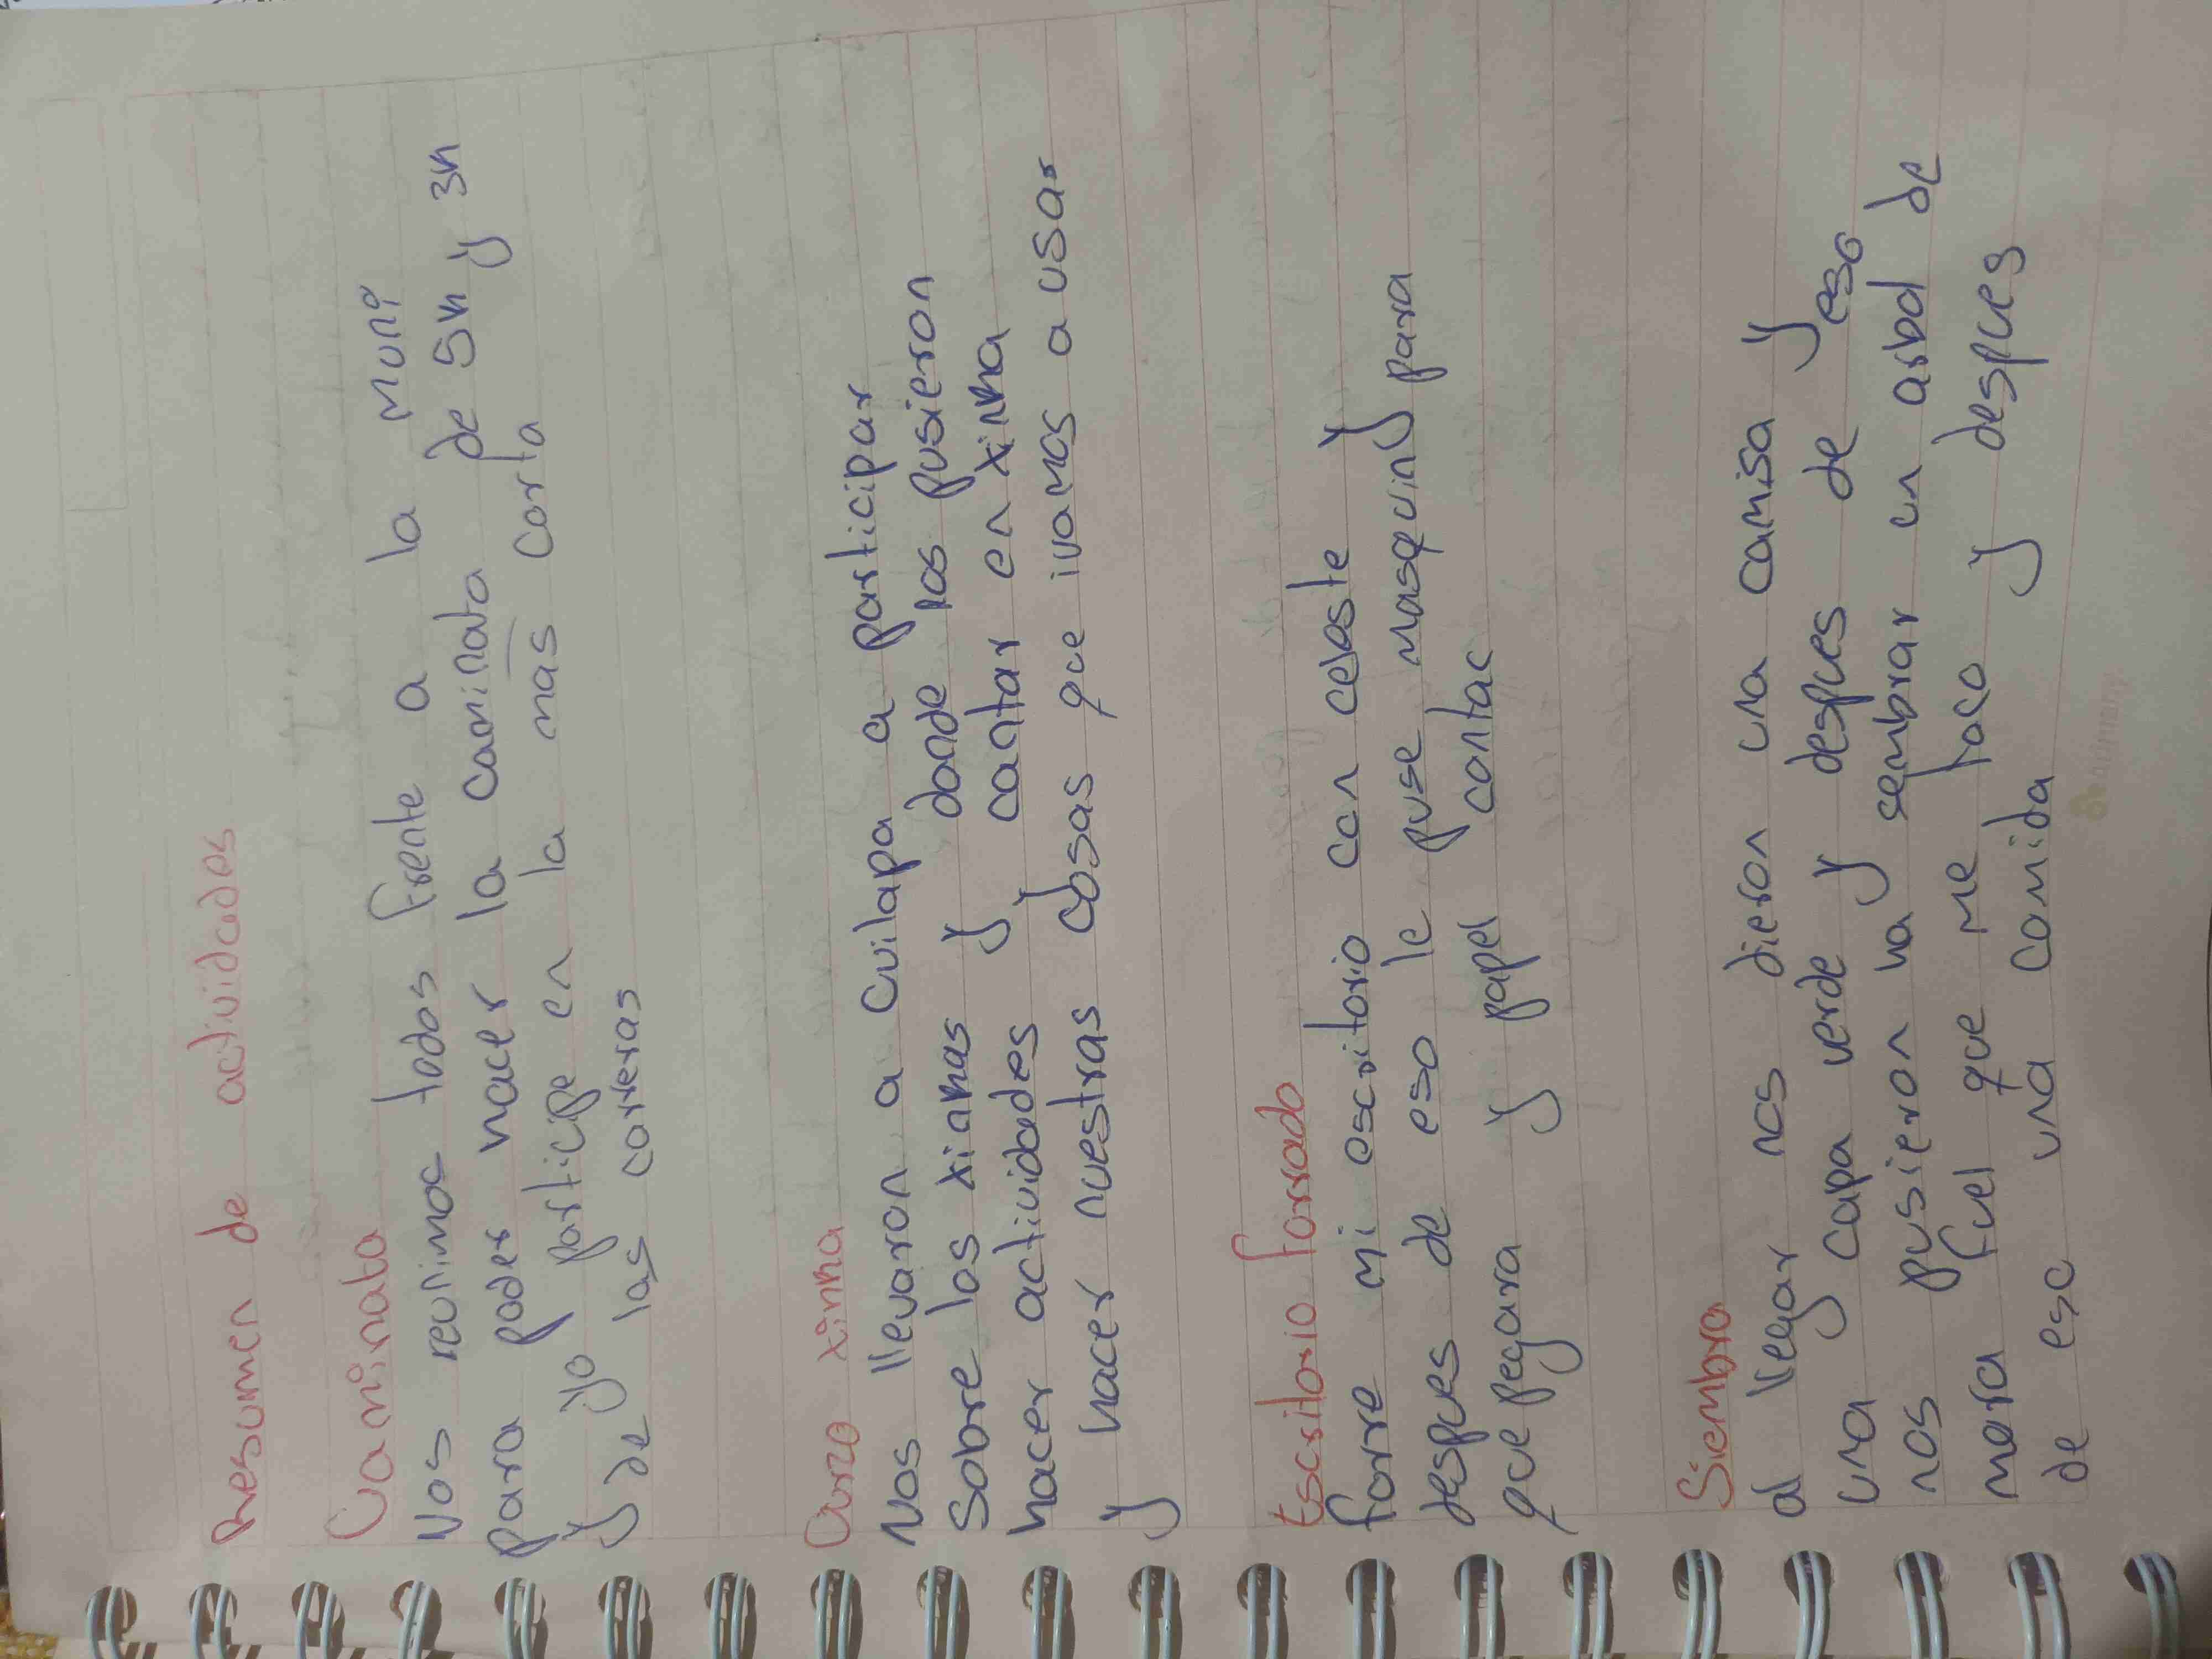 Resumen de actividades
Caminata
Nos reunimos todos frente a la muni
para poder hacer la caminata de 5k y 3k
y de yo participe en la mas corta
las carreras
Curso xinka
Nos llevaron a cuilapa a participar
sobre los xinkas y donde los pusieron
hacer actividades y cantar en xinka
y hacer nuestras cosas que ivamos a usar
Escritorio forrado
forre mi escritorio con celeste y
despues de eso le puse masquin y para
que pegara y papel contac
Siembra
al llegar nos dieron una camisa y
una capa verde y despues de eso
nos pusieron ha sembrar un arbol de
mora fuel que me toco y despues
de eso una comida